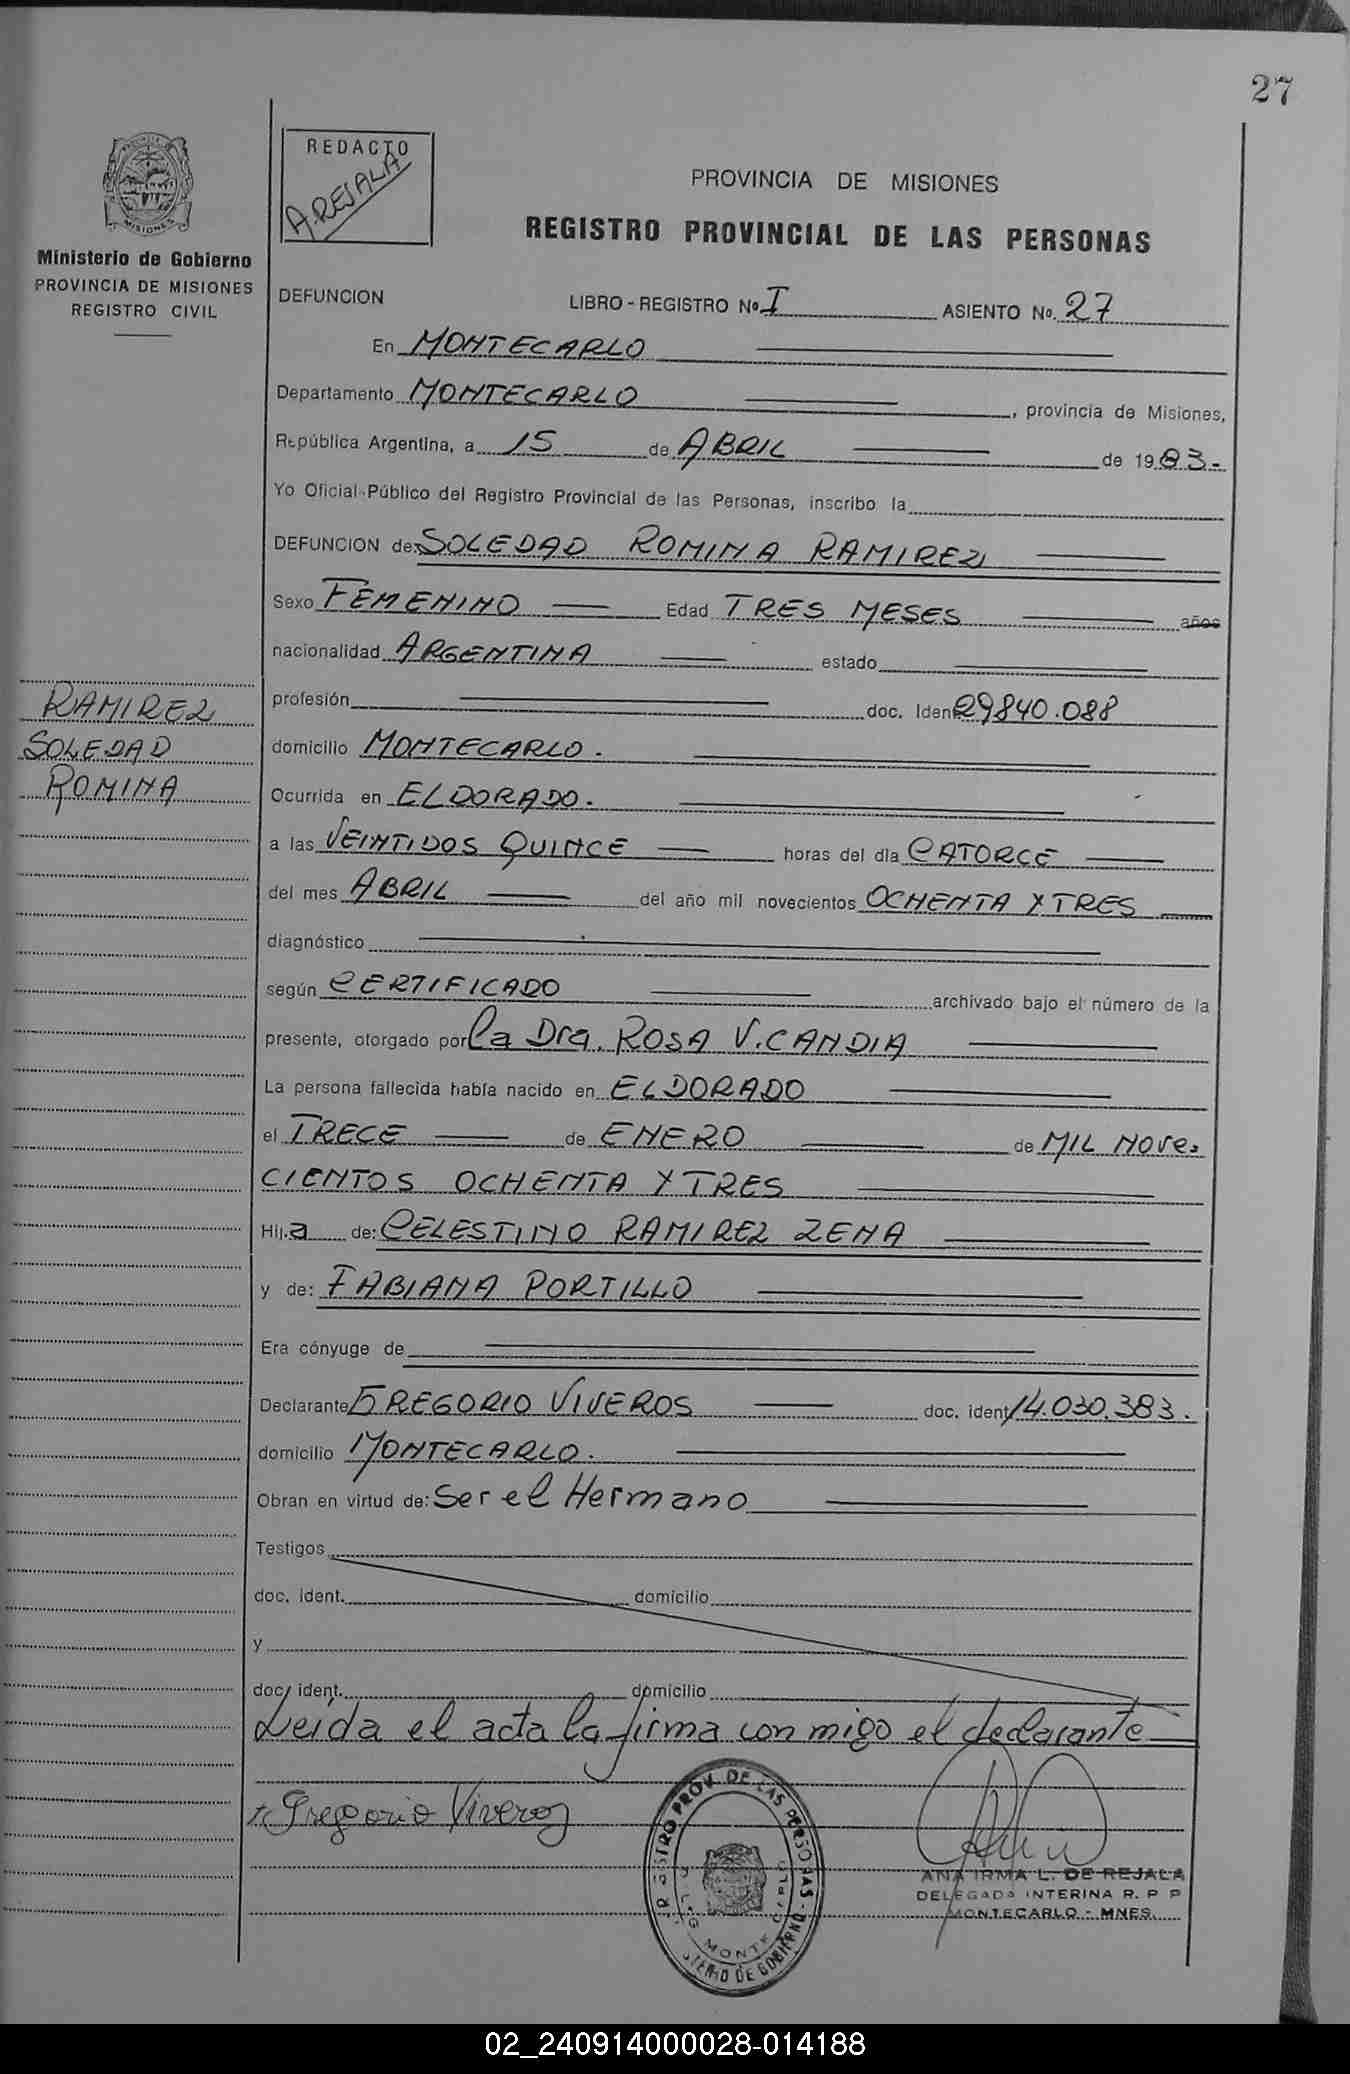 27
REDACTO
A. REJALA
PROVINCIA DE MISIONES
REGISTRO PROVINCIAL DE LAS PERSONAS
MISIONES
Ministerio de Gobierno
PROVINCIA DE MISIONES
REGISTRO CIVIL
DEFUNCION LIBRO - REGISTRO Nº I ASIENTO No. 27
En MONTECARLO
Departamento MONTECARLO, provincia de Misiones,
República Argentina, a 15 de ABRIL de 1983.-
Yo Oficial Público del Registro Provincial de las Personas, inscribo la
DEFUNCION de: SOLEDAD ROMINA RAMIREZ
Sexo FEMENINO Edad TRES MESES años
nacionalidad ARGENTINA estado
RAMIREZ
SOLEDAD
ROMINA
profesión doc. Ident. 29840.088
domicilio MONTECARLO.
Ocurrida en ELDORADO.
a las VEINTIDOS QUINCE horas del día CATORCE
del mes ABRIL del año mil novecientos OCHENTA Y TRES
diagnóstico
según CERTIFICADO archivado bajo el número de la
presente, otorgado por la Dra. ROSA V. CANDIA
La persona fallecida había nacido en ELDORADO
el TRECE de ENERO de MIL NOVE.
CIENTOS OCHENTA Y TRES
Hij.a de: CELESTINO RAMIREZ ZENA
y de: FABIANA PORTILLO
Era cónyuge de
Declarante GREGORIO VIVEROS doc. ident 14.030.383.
domicilio MONTECARLO.
Obran en virtud de: Ser el Hermano
Testigos
doc. ident. domicilio
y
doc. ident. domicilio
Leída el acta la firma con migo el declarante
Gregorio Viveros
PROV. DE LAS PERSONAS
MONTE
DE GOBIERNO
ANA IRMA L. DE REJALA
DELEGADA INTERINA R. P P
MONTECARLO - MNES.
02_240914000028-014188